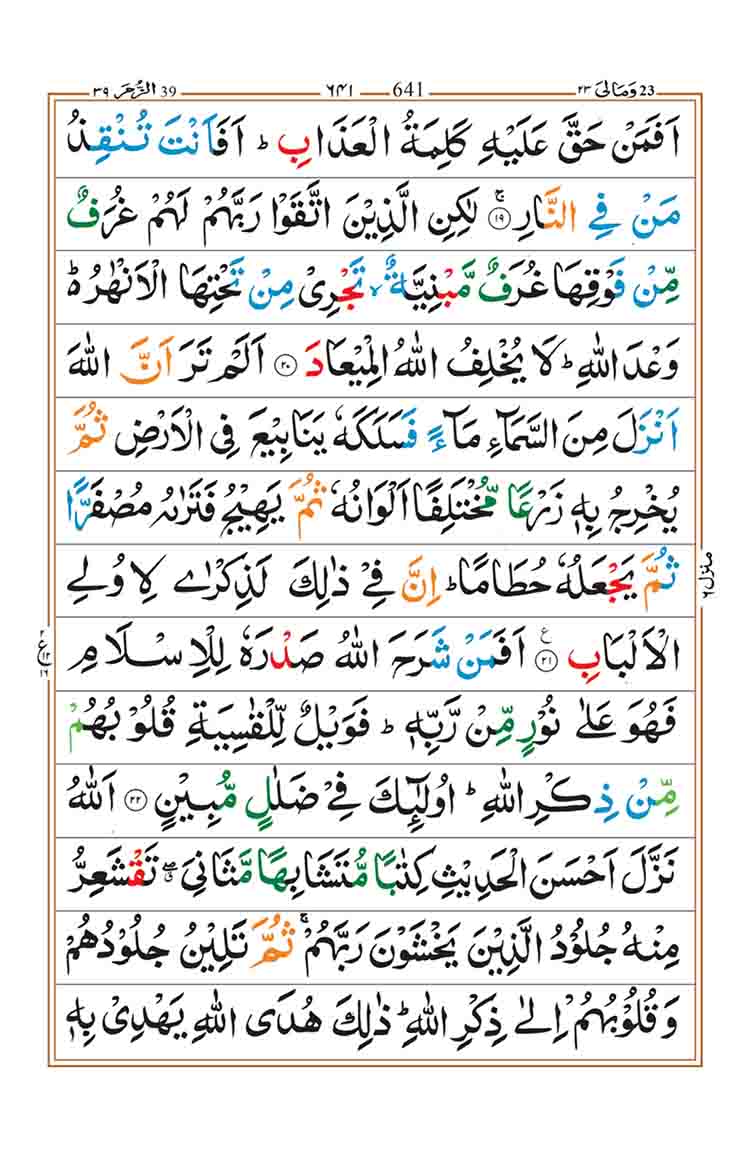 ٣٩ الزمر 39 ٦٤١ 641 ٢٣ وَمَالِیَ 23
اَفَمَنْ حَقَّ عَلَیْهِ كَلِمَةُ الْعَذَابِ ؕ اَفَاَنْتَ تُنْقِذُ
مَنْ فِی النَّارِ ۚ ۝۱۹ لٰكِنِ الَّذِیْنَ اتَّقَوْا رَبَّهُمْ لَهُمْ غُرَفٌ
مِّنْ فَوْقِهَا غُرَفٌ مَّبْنِیَّةٌ ۙ تَجْرِیْ مِنْ تَحْتِهَا الْاَنْهٰرُ ؕ۬
وَعْدَ اللّٰهِ ؕ لَا یُخْلِفُ اللّٰهُ الْمِیْعَادَ ۝۲۰ اَلَمْ تَرَ اَنَّ اللّٰهَ
اَنْزَلَ مِنَ السَّمَآءِ مَآءً فَسَلَكَهٗ یَنَابِیْعَ فِی الْاَرْضِ ثُمَّ
یُخْرِجُ بِهٖ زَرْعًا مُّخْتَلِفًا اَلْوَانُهٗ ثُمَّ یَهِیْجُ فَتَرٰىهُ مُصْفَرًّا
ثُمَّ یَجْعَلُهٗ حُطَامًا ؕ اِنَّ فِیْ ذٰلِكَ لَذِكْرٰی لِاُولِی
الْاَلْبَابِ ۝۲۱ ع اَفَمَنْ شَرَحَ اللّٰهُ صَدْرَهٗ لِلْاِسْلَامِ
فَهُوَ عَلٰی نُوْرٍ مِّنْ رَّبِّهٖ ؕ فَوَیْلٌ لِّلْقٰسِیَةِ قُلُوْبُهُمْ
مِّنْ ذِكْرِ اللّٰهِ ؕ اُولٰٓىِٕكَ فِیْ ضَلٰلٍ مُّبِیْنٍ ۝۲۲ اَللّٰهُ
نَزَّلَ اَحْسَنَ الْحَدِیْثِ كِتٰبًا مُّتَشَابِهًا مَّثَانِیَ ۖۗ تَقْشَعِرُّ
مِنْهُ جُلُوْدُ الَّذِیْنَ یَخْشَوْنَ رَبَّهُمْ ۚ ثُمَّ تَلِیْنُ جُلُوْدُهُمْ
وَقُلُوْبُهُمْ اِلٰی ذِكْرِ اللّٰهِ ؕ ذٰلِكَ هُدَی اللّٰهِ یَهْدِیْ بِهٖ
منزل ٦